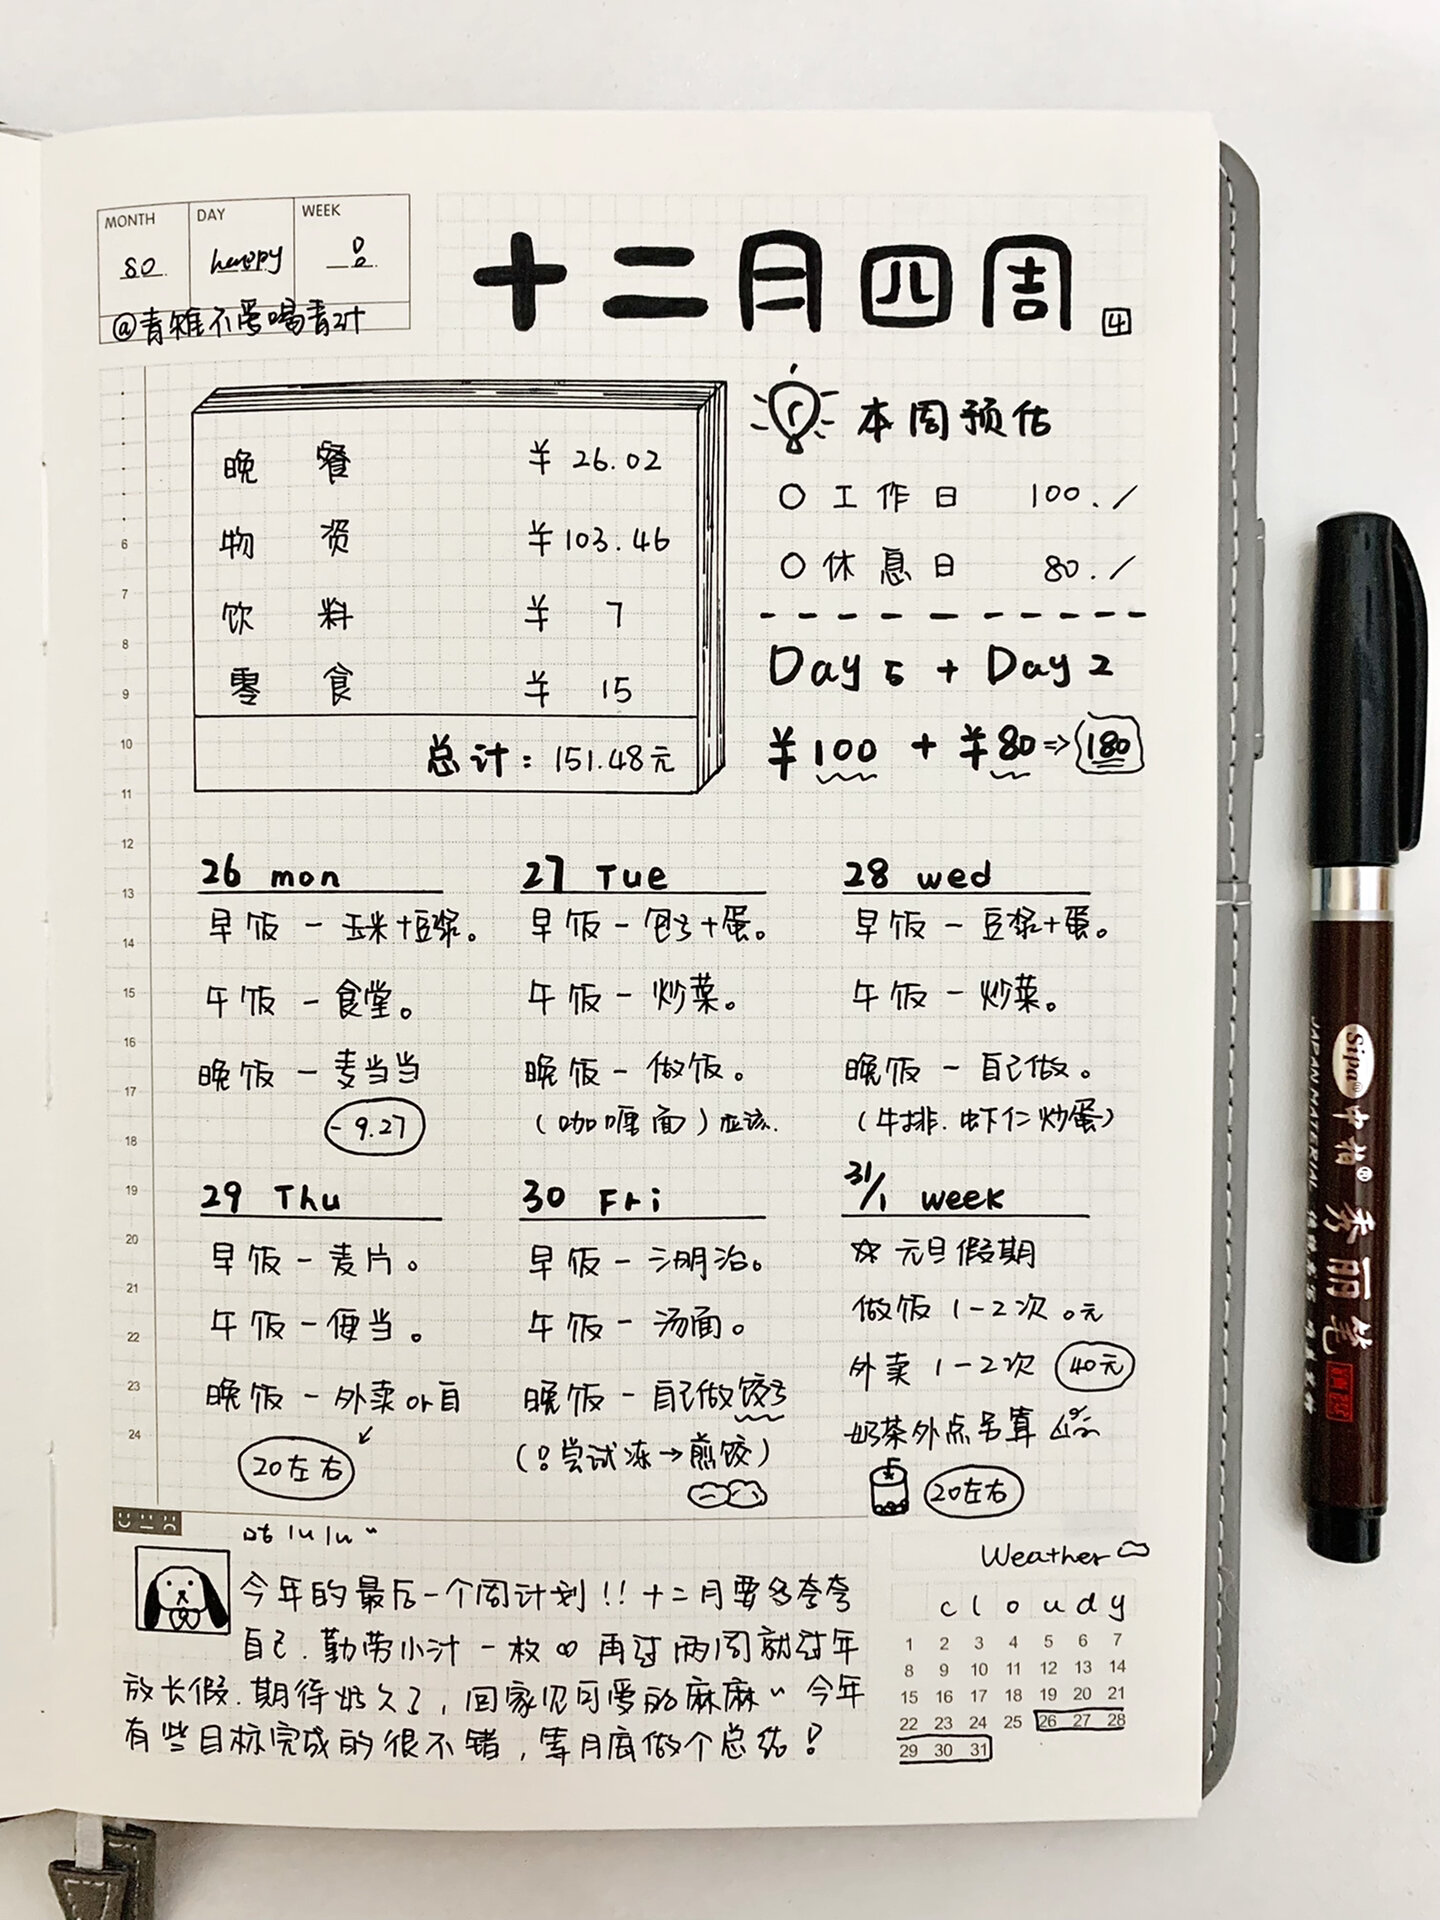 MONTH DAY WEEK
so happy
@青雉不爱喝青汁
十二月四周
4
晚餐 ¥ 26.02
物资 ¥ 103.46
饮料 ¥ 7
零食 ¥ 15
总计：151.48元
本周预估
○ 工作日 100./
○ 休息日 80./
Day 5 + Day 2
¥100 + ¥80 ⇒ 180
6
7
8
9
10
11
12
13
14
15
16
17
18
19
20
21
22
23
24
26 mon
早饭 - 玉米+豆浆。
午饭 - 食堂。
晚饭 - 麦当当
-9.27
27 Tue
早饭 - 包子+蛋。
午饭 - 炒菜。
晚饭 - 做饭。
(咖喱面) 应该.
28 wed
早饭 - 豆浆+蛋。
午饭 - 炒菜。
晚饭 - 自己做。
(牛排. 虾仁炒蛋)
29 Thu
早饭 - 麦片。
午饭 - 便当。
晚饭 - 外卖 or 自
↙
20左右
30 Fri
早饭 - 三明治。
午饭 - 汤面。
晚饭 - 自己做饺子
(尝试冻→煎饺)
31/1 week
☆ 元旦假期
做饭 1-2次 0元
外卖 1-2次 40元
奶茶外点另算
20左右
lulu~
今年的最后一个周计划!! 十二月要多夸夸
自己. 勤劳小汁一枚 ∞ 再过两周就过年
放长假. 期待好久了, 回家见可爱的麻麻~ 今年
有些目标完成的很不错, 等月底做个总结!
Weather
cloudy
1 2 3 4 5 6 7
8 9 10 11 12 13 14
15 16 17 18 19 20 21
22 23 24 25 26 27 28
29 30 31
Sipa 中柏® 秀丽笔
JAPAN MATERIAL